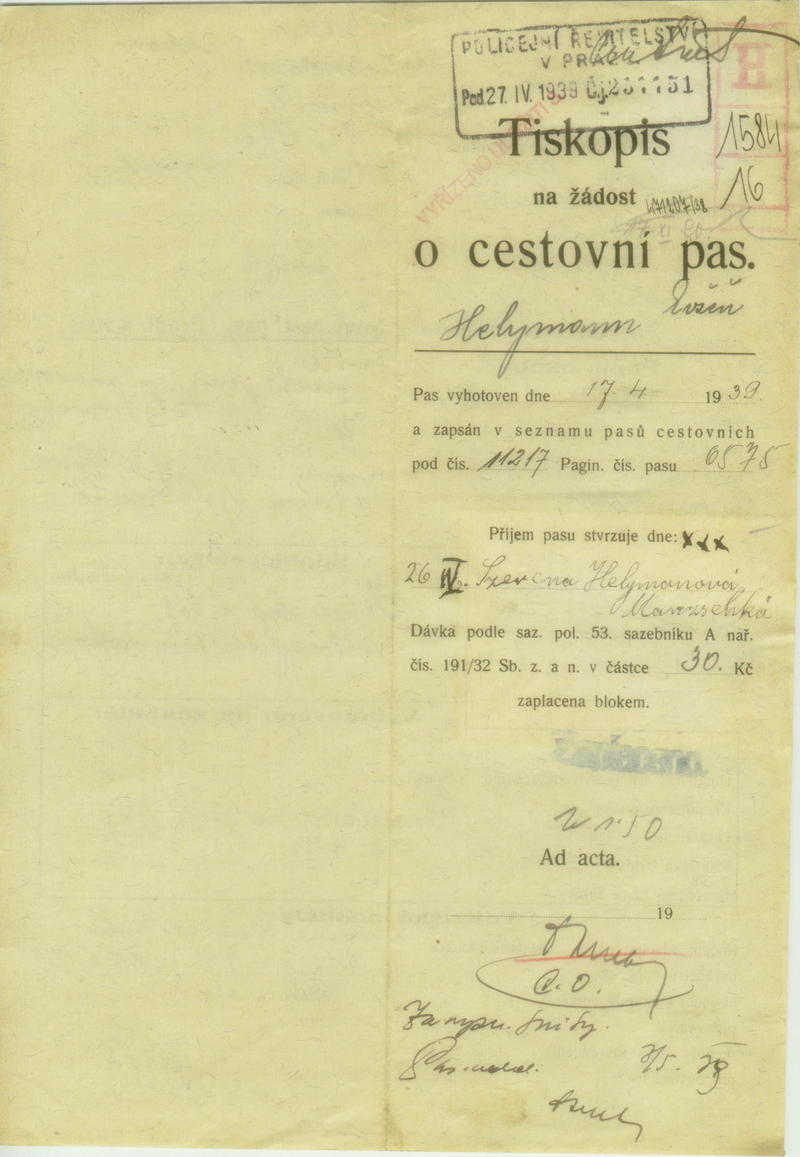 POLICEJNÍ ŘEDITELSTVÍ
V PRAZE
Pod. 27. IV. 1939 Čj. 231151
H
1584
16
VYŘÍZENO
Tiskopis
na žádost
o cestovní pas.
Helymann Evžen
Pas vyhotoven dne 17. 4. 1939.
a zapsán v seznamu pasů cestovních
pod čís. 11217 Pagin. čís. pasu 0575
Příjem pasu stvrzuje dne: xxx
26 IV. Helymanová
Dávka podle saz. pol. 53. sazebníku A nař.
čís. 191/32 Sb. z. a n. v částce 30. Kč
zaplacena blokem.
Ad acta.
19